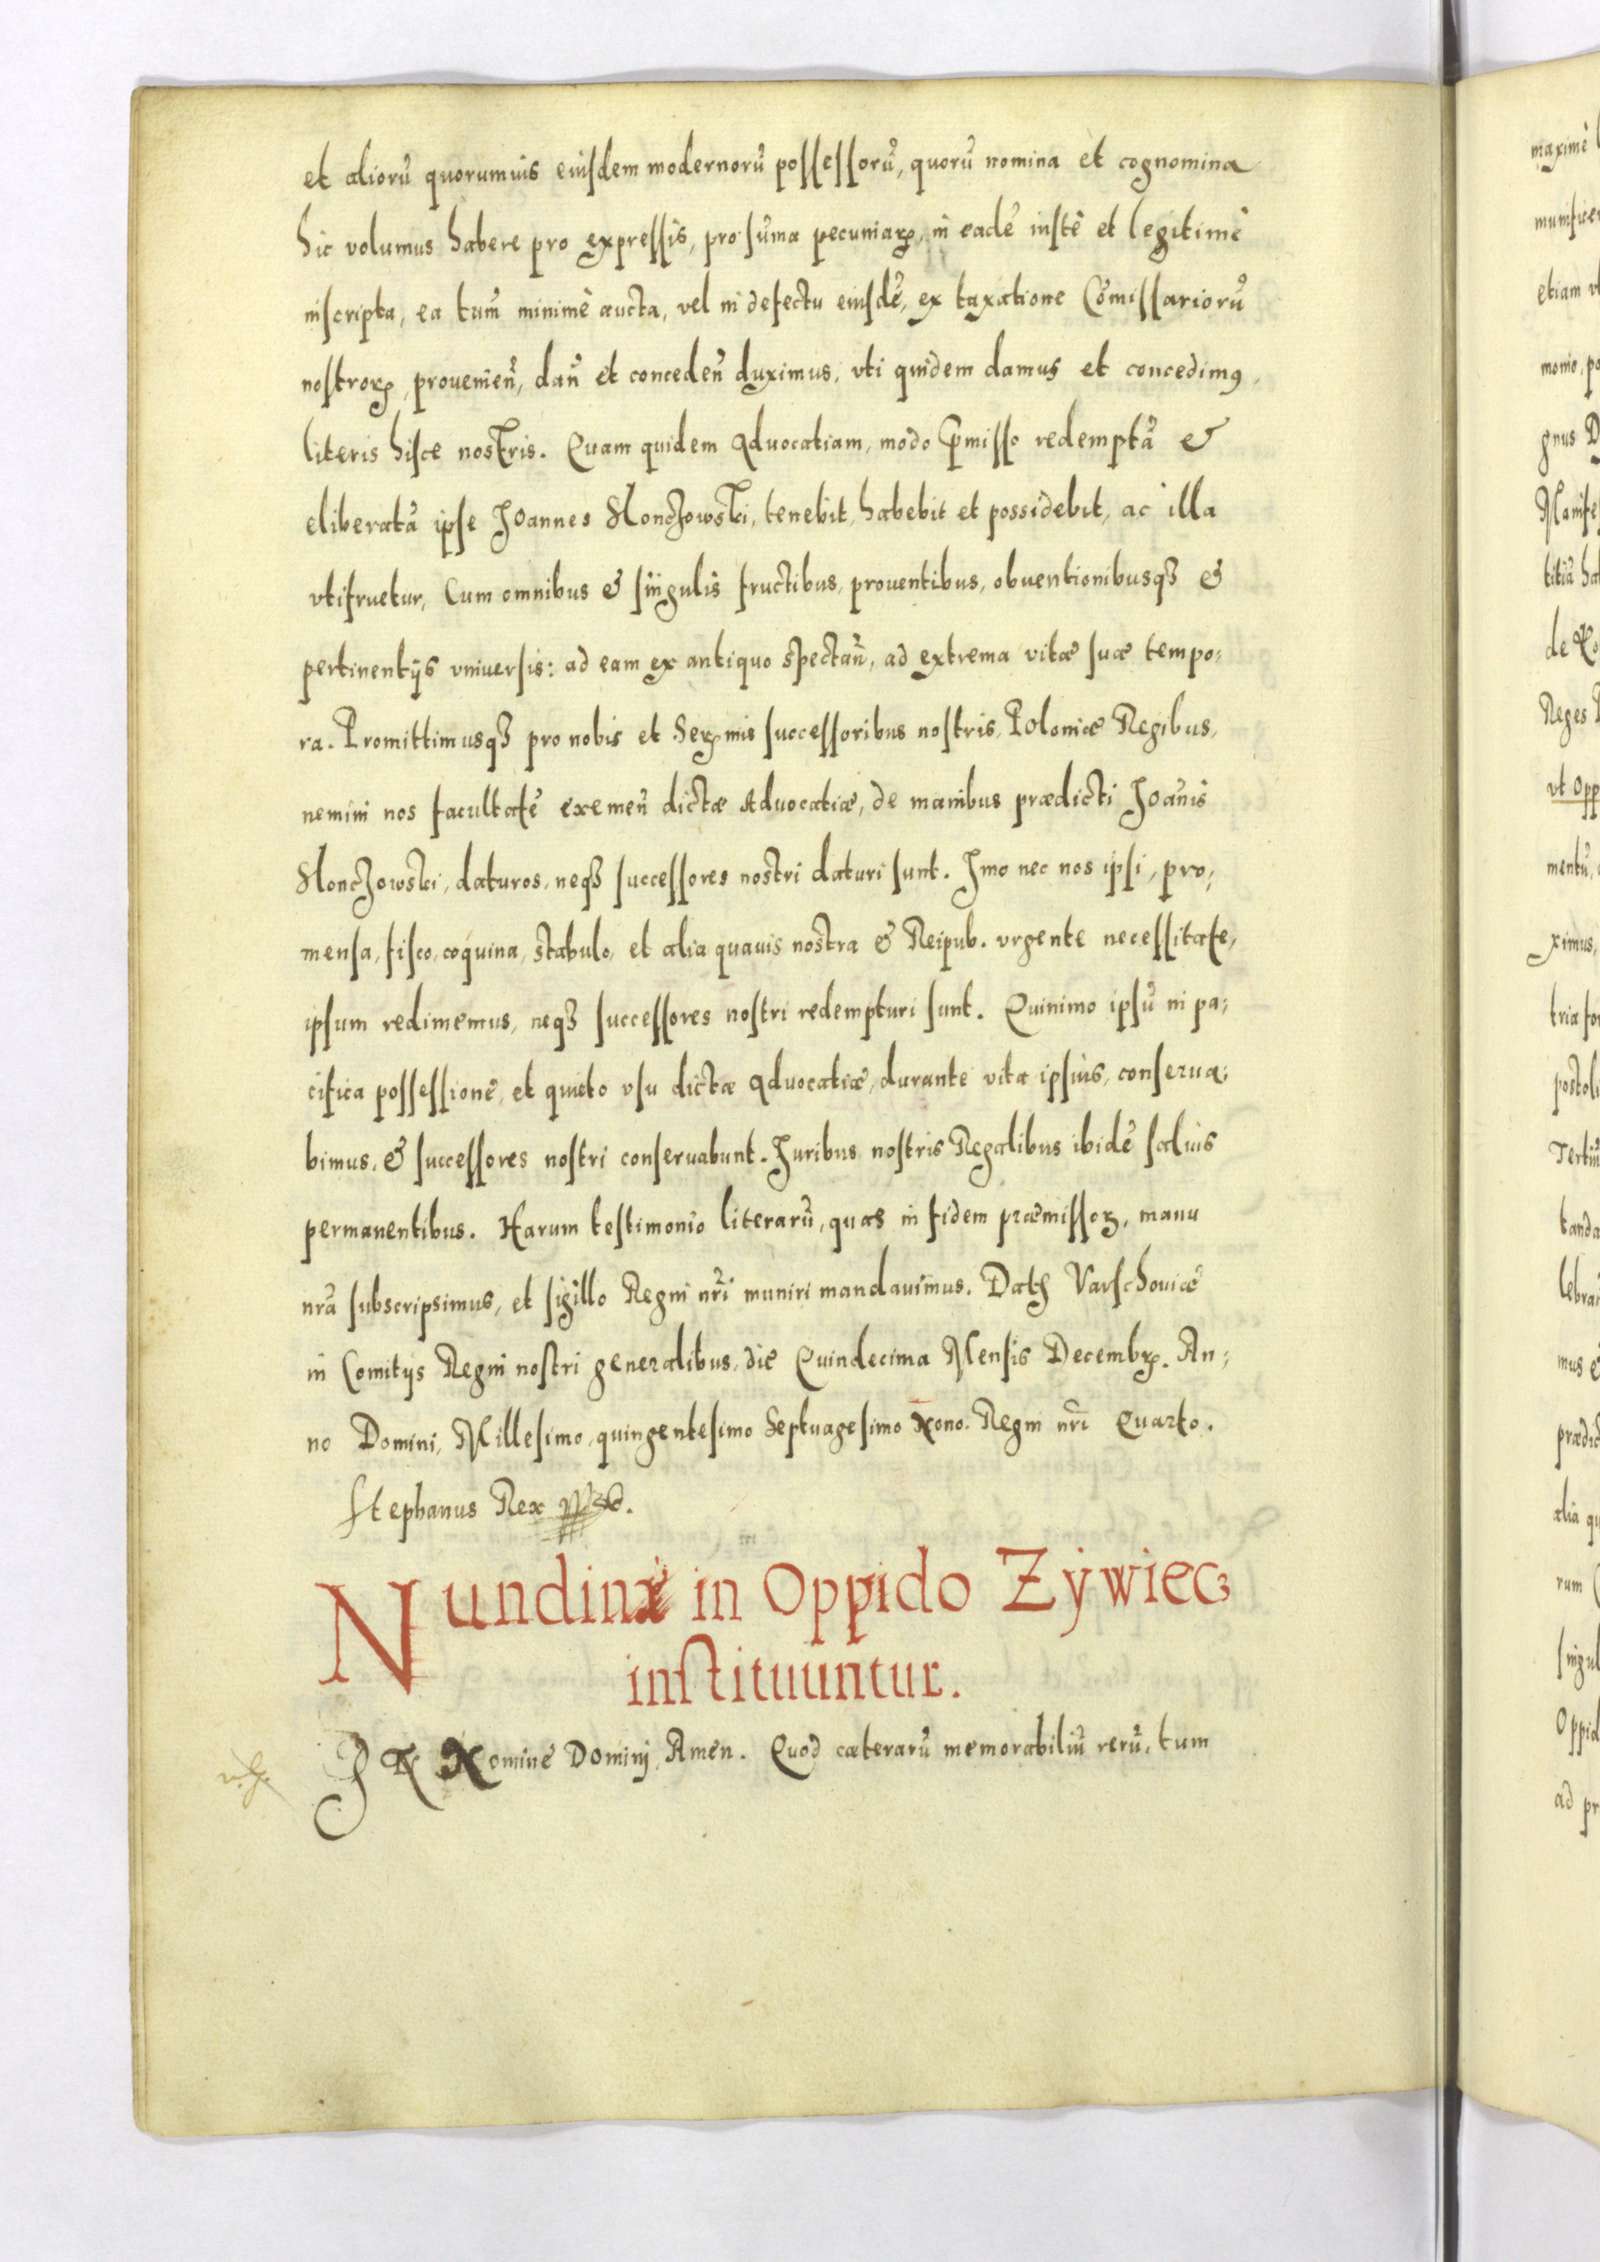 et aliorũ quorumuis eiusdem modernorũ possessorũ, quorũ nomina et cognomina
hic volumus habere pro expressis, pro sũma pecuniarꝝ, in eadẽ iustè et legitimè
inscripta, ea tum̃ minimè aucta, vel in defectu eiusdẽ, ex taxatione Cõmissariorũ
nostrorꝝ, prouenien̄, dan̄ et conceden̄ duximus, vti quidem damus et concedimꝰ,
literis hisce nostris. Quam quidem Aduocatiam, modo p̃misso redemptã &
eliberatã ipse Joannes Slonczowski, tenebit, habebit et possidebit, ac illa
vtifruetur, Cum omnibus & singulis fructibus, prouentibus, obuentionibusqꝫ &
pertinentijs vniuersis: ad eam ex antiquo spectan̄, ad extrema vitæ suæ tempo:
ra. Promittimusqꝫ pro nobis et Serꝝmis successoribus nostris, Poloniæ Regibus,
nemini nos facultatẽ eximen̄ dictæ Aduocatiæ, de manibus prædicti Joãnis
Slonczowski, daturos, neqꝫ successores nostri daturi sunt. Jmo nec nos ipsi, pro:
mensa, fisco, coquina, stabulo, et alia quauis nostra & Reipub. vrgente necessitate,
ipsum redimemus, neqꝫ successores nostri redempturi sunt. Quinimo ipsũ in pa:
cifica possessionẽ, et quieto vsu dictæ Aduocatiæ, durante vita ipsius, conserua:
bimus, & successores nostri conseruabunt. Juribus nostris Regalibus ibidẽ saluis
permanentibus. Harum testimonio literarũ, quas in fidem præmissorꝝ, manu
nr̃a subscripsimus, et sigillo Regni nr̃i muniri mandauimus. Datꝫ Varschouiæ
in Comitijs Regni nostri generalibus, die Quindecima Mensis Decembrꝝ. An:
no Domini, Millesimo, quingentesimo Septuagesimo Nono. Regni nr̃i Quarto.
Stephanus Rex
Nundinæ in Oppido Zÿwiec
instituuntur.
IN Nomine Domini Amen. Quod cæterarũ memorabiliũ rerũ, tum
maximè
munifice
etiam vt
monio, po
gnus D
Manife
titiã ha
de Ko
Reges P
vt opp
mentũ,
ximus,
triæ for
postoli
Tertiũ
tanda
lebra
mus &
prædic
alia qu
rum
singul
Oppid
ad pr